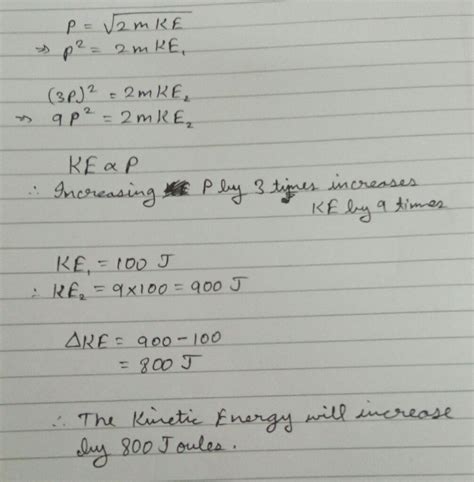 P = √2mKE
⇒ p² = 2mKE₁
(3P)² = 2mKE₂
⇒ 9P² = 2mKE₂
KE ∝ P
∴ Increasing P by 3 times increases
KE by 9 times
KE₁ = 100 J
∴ KE₂ = 9×100 = 900 J
ΔKE = 900 - 100
= 800 J
∴ The Kinetic Energy will increase
by 800 Joules.